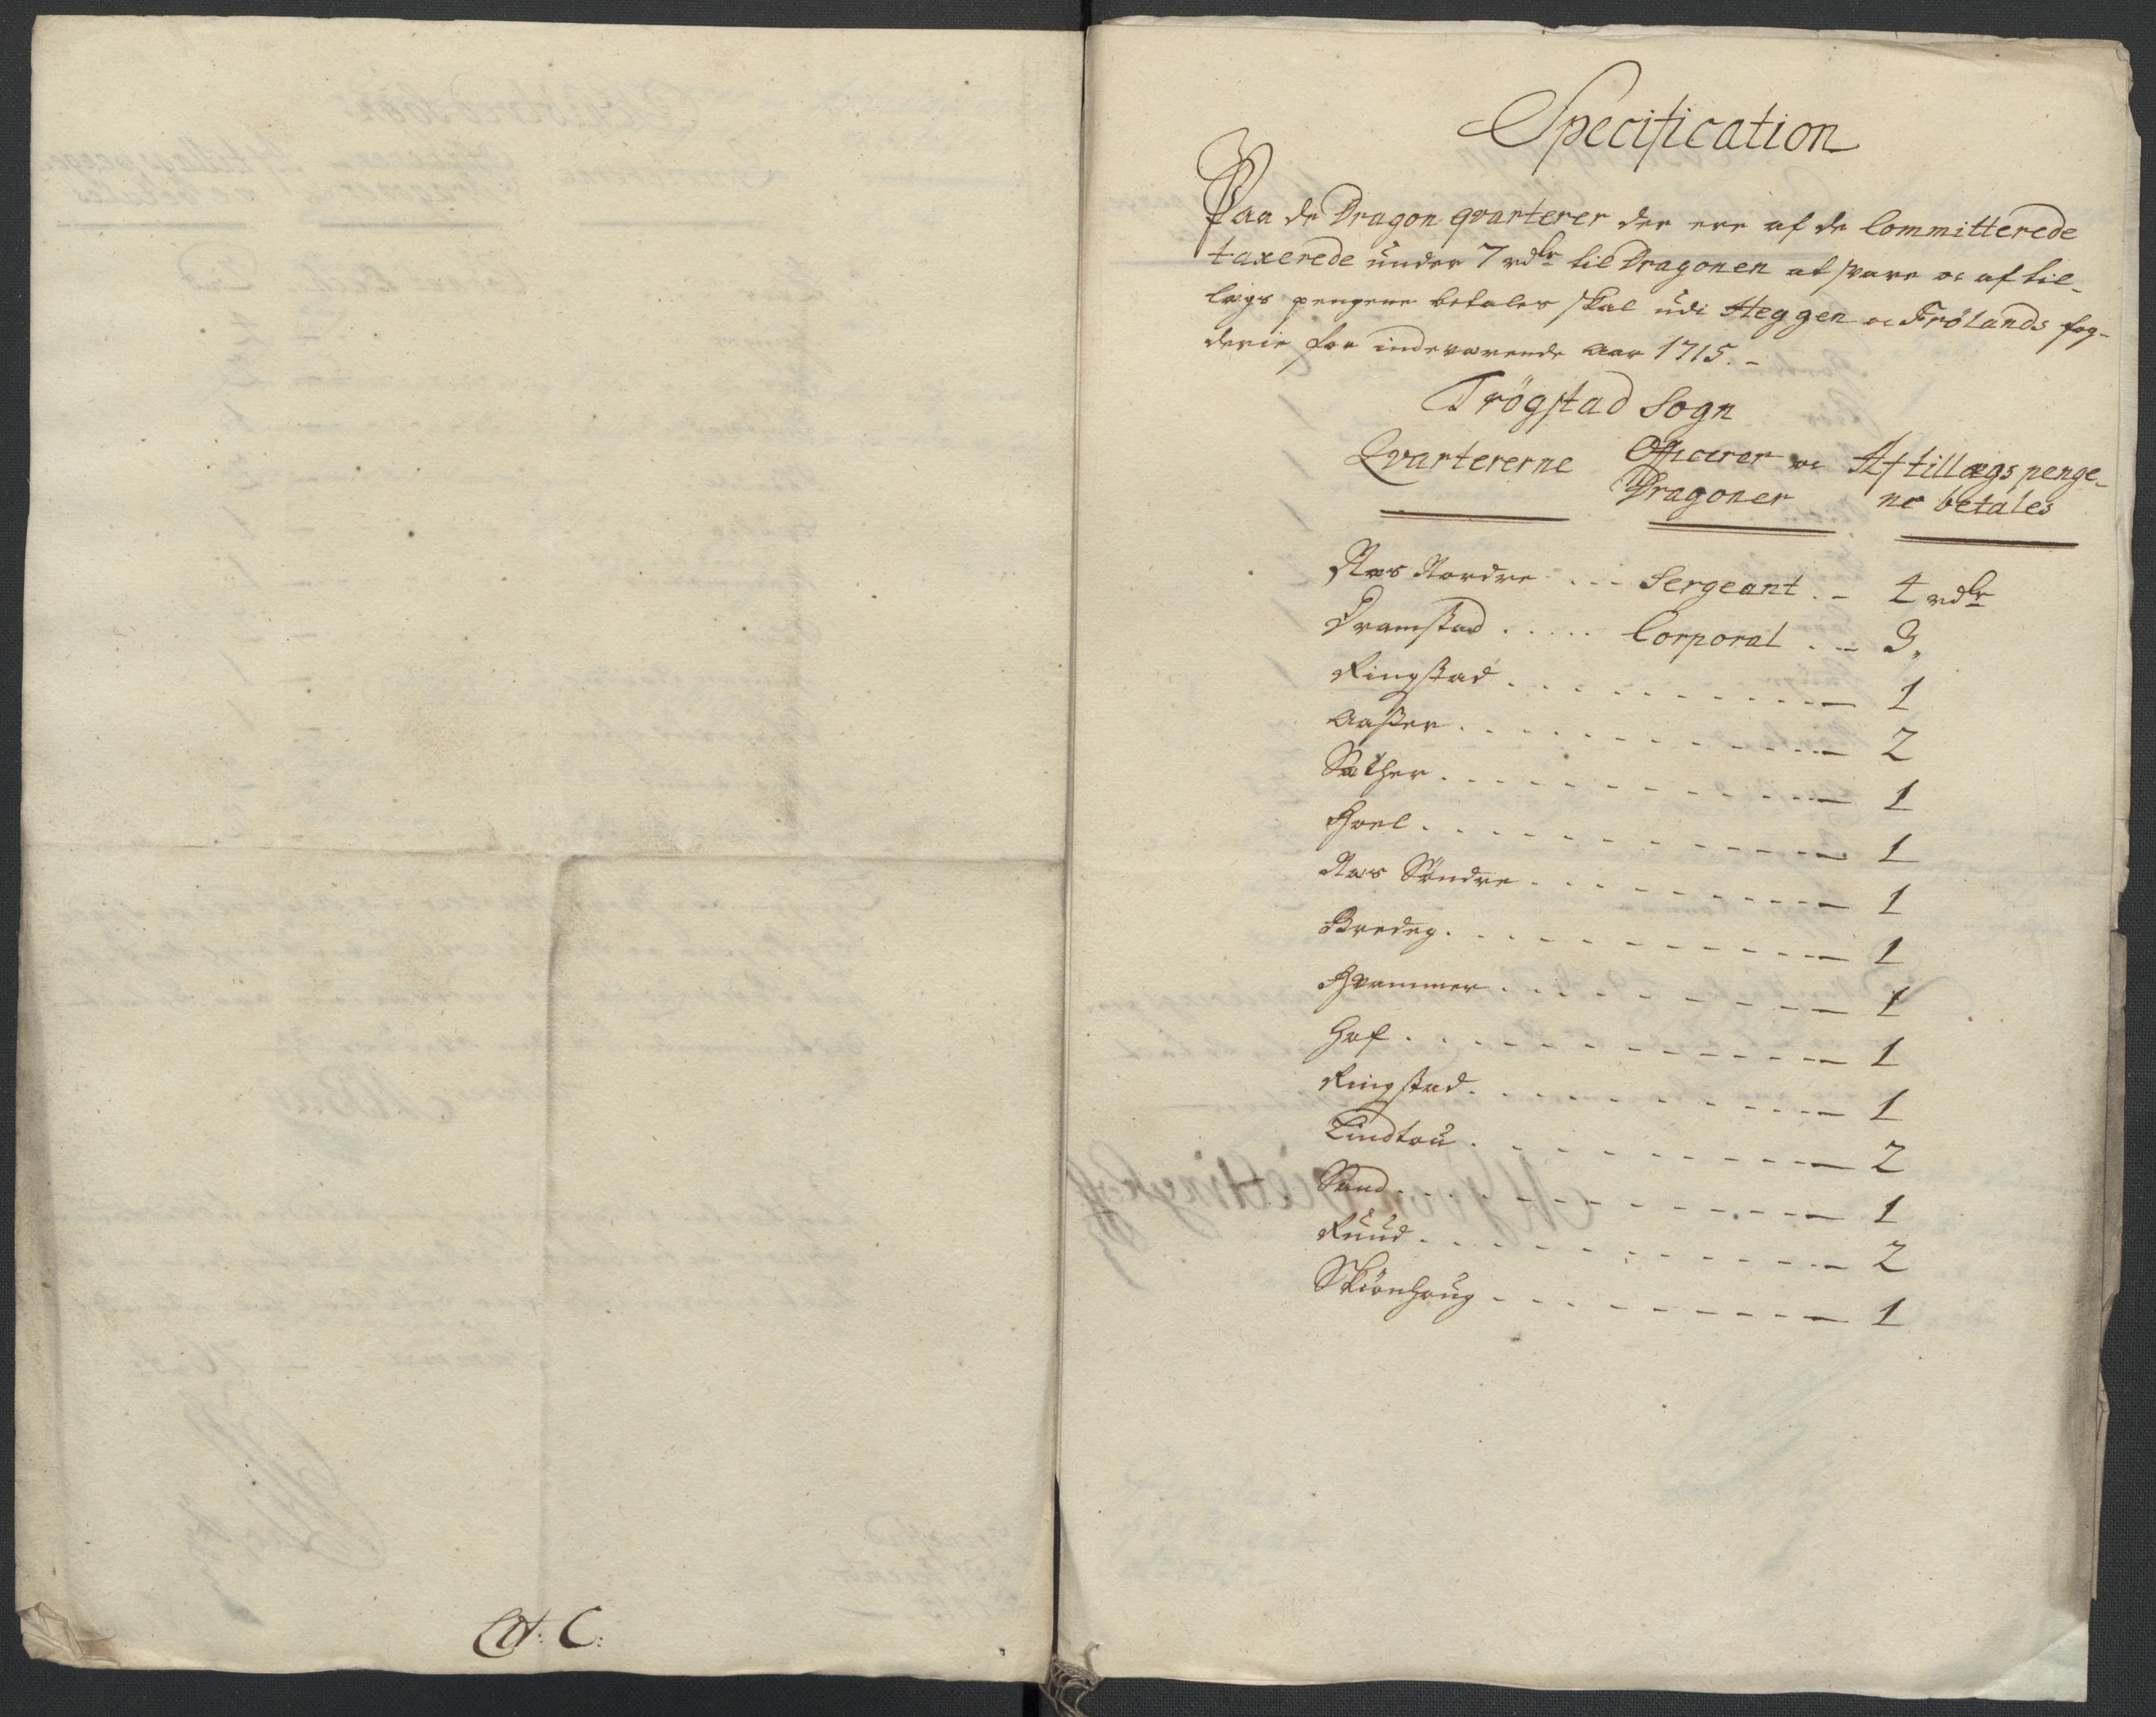 Lit: C:
Specification
Paa de Dragon qvarterer der ere af de Committerede
taxerede under 7 rdlr til Dragonen at svare oc af til-
lægs pengene betales skal udi Heggen oc Frölands fog-
derie for indeværende Aar 1715.-
Trögstad Sogn
Qvartererne Officerer oc Af tillægs penge-
Dragoner ne betales
Næs Nordre . . . Sergeant . - 4 rdlr
Dramstad . . . . . Corporal . - 3.
Ringstad . . . . . . . . . . . 1
Aasser . . . . . . . . . . . . 2
Sæther . . . . . . . . . . . . 1
Hoel . . . . . . . . . . . . . 1
Næs Söndre . . . . . . . . . . 1
Bredeg . . . . . . . . . . . . 1
Hvammer . . . . . . . . . . . 1
Hof . . . . . . . . . . . . . 1
Ringstad . . . . . . . . . . . 1
Lindtou . . . . . . . . . . . 2
Sand . . . . . . . . . . . . . 1
Ruud . . . . . . . . . . . . . 2
Skiönhaug . . . . . . . . . . 1